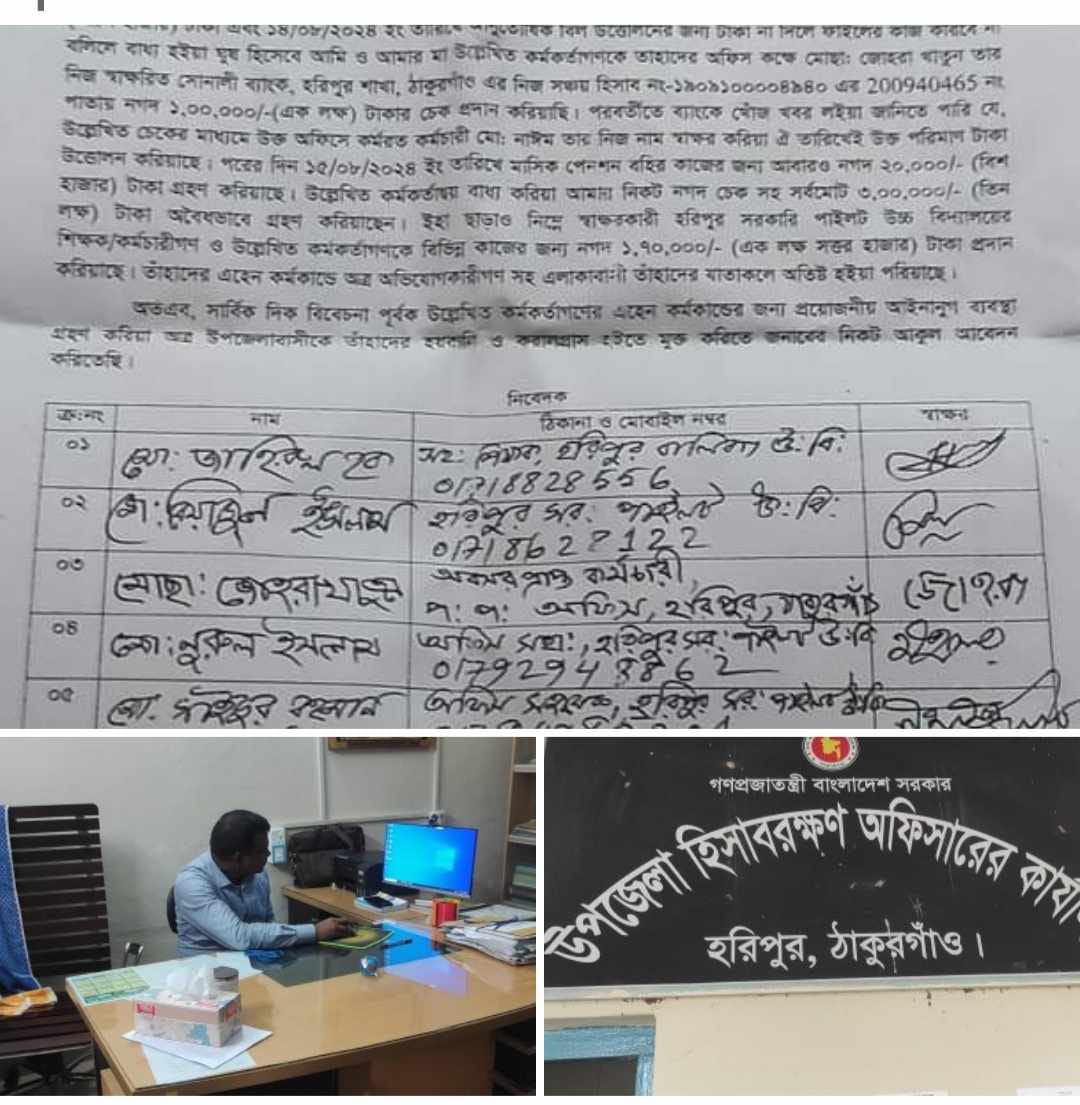 ১৪/০৮/২০২৪ ইং তারিখে আনুতোষিক বিল উত্তোলনের জন্য টাকা না দিলে ফাইলের কাজ করবে না
বলিলে বাধ্য হইয়া ঘুষ হিসেবে আমি ও আমার মা উল্লেখিত কর্মকর্তাগণকে তাহাদের অফিস কক্ষে মোছাঃ জোহরা খাতুন তার
নিজ স্বাক্ষরিত সোনালী ব্যাংক, হরিপুর শাখা, ঠাকুরগাঁও এর নিজ সঞ্চয় হিসাব নং-১৯০৯১০০০০৪৯৪০ এর 200940465 নং
পাতায় নগদ ১,০০,০০০/-(এক লক্ষ) টাকার চেক প্রদান করিয়াছি। পরবর্তীতে ব্যাংকে খোঁজ খবর লইয়া জানিতে পারি যে,
উল্লেখিত চেকের মাধ্যমে উক্ত অফিসে কর্মরত কর্মচারী মো: নাঈম তার নিজ নাম স্বাক্ষর করিয়া ঐ তারিখেই উক্ত পরিমাণ টাকা
উত্তোলন করিয়াছে। পরের দিন ১৫/০৮/২০২৪ ইং তারিখে মাসিক পেনশন বহির কাজের জন্য আবারও নগদ ২০,০০০/- (বিশ
হাজার) টাকা গ্রহণ করিয়াছে। উল্লেখিত কর্মকর্তাদ্বয় বাধ্য করিয়া আমার নিকট নগদ চেক সহ সর্বমোট ৩,০০,০০০/- (তিন
লক্ষ) টাকা অবৈধভাবে গ্রহণ করিয়াছেন। ইহা ছাড়াও নিম্নে স্বাক্ষরকারী হরিপুর সরকারি পাইলট উচ্চ বিদ্যালয়ের
শিক্ষক/কর্মচারীগণ ও উল্লেখিত কর্মকর্তাগণকে বিভিন্ন কাজের জন্য নগদ ১,৭০,০০০/- (এক লক্ষ সত্তর হাজার) টাকা প্রদান
করিয়াছে। তাঁহাদের এহেন কর্মকান্ডে অত্র অভিযোগকারীগণ সহ এলাকাবাসী তাঁহাদের যাতাকলে অতিষ্ঠ হইয়া পরিয়াছে।
অতএব, সার্বিক দিক বিবেচনা পূর্বক উল্লেখিত কর্মকর্তাগণের এহেন কর্মকান্ডের জন্য প্রয়োজনীয় আইনানুগ ব্যবস্থা
গ্রহণ করিয়া অত্র উপজেলাবাসীকে তাঁহাদের হয়রানি ও করালগ্রাস হইতে মুক্ত করিতে জনাবের নিকট আকুল আবেদন
করিতেছি।
নিবেদক
ক্র:নং নাম ঠিকানা ও মোবাইল নম্বর স্বাক্ষর
০১ মো: হক সহ: শিক্ষক, হরিপুর বালিকা উ: বি:
01718828556
০২ মো: ইসলাম হরিপুর সর: পাইলট উ: বি:
01718622122
০৩ মোছা: জোহরা খাতুন অবসর প্রাপ্ত কর্মচারী জোহরা
প: প: অফিস, হরিপুর, ঠাকুরগাঁও
০৪ মো: নুরুল ইসলাম অফিস সহা:, হরিপুর সর: পাইলট উ: বি
01792948862
০৫ মো. রহমান অফিস সহায়ক, হরিপুর সর: পাইলট
গণপ্রজাতন্ত্রী বাংলাদেশ সরকার
উপজেলা হিসাবরক্ষণ অফিসারের কার্যা
হরিপুর, ঠাকুরগাঁও।